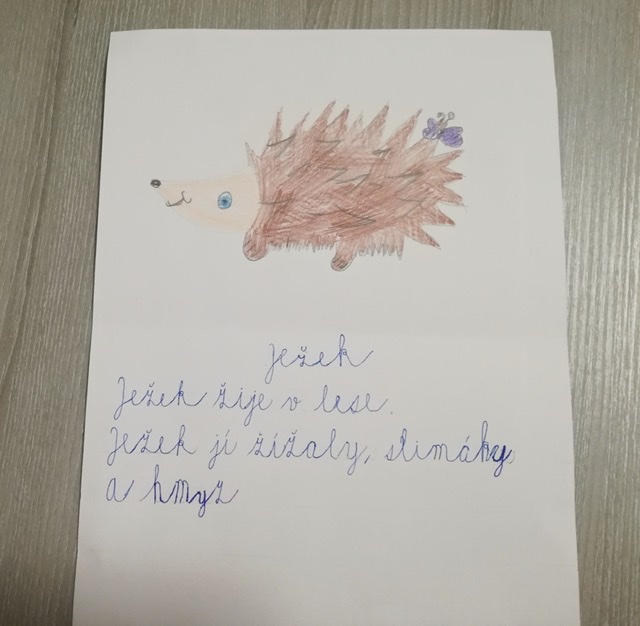 Ježek
Ježek žije v lese.
Ježek jí žížaly, slimáky,
a hmyz